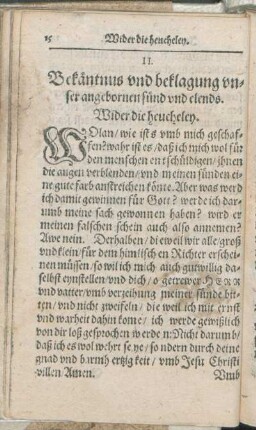 15 Wider die heucheley.
II.
Bekäntnus vnd beklagung vn-
ser angebornen sünd vnd elends.
Wider die heucheley.
WOlan/ wie ist s vmb mich geschaf-
fen? wahr ist es/ daß ich mich wol für
den menschen entschüldigen/ jhnen
die augen verblenden/ vnd meinen sünden ei-
ne gute farb anstreichen könte. Aber was werd
ich damit gewinnen für Gott? werde ich dar-
umb meine sach gewonnen haben? wird er
meinen falschen schein auch also annemen?
Awe nein. Derhalben/ dieweil wir alle/ groß
vnd klein/ für dem himlischen Richter erschei-
nen müssen/ so wil ich mich auch gutwillig da-
selbst eynstellen/ vnd dich/ o getrewer HERR
vnd vatter/ vmb verzeihung meiner sünde bit-
ten/ vnd nicht zweifeln/ die weil ich mit ernst
vnd warheit dahin kome/ ich werde gewißlich
von dir loß gesprochen werden: Nicht darumb/
daß ich es wol wehrt seye/ sondern durch deine
gnad vnd barmhertzigkeit/ vmb Jesu Christi
willen Amen.
Vmb